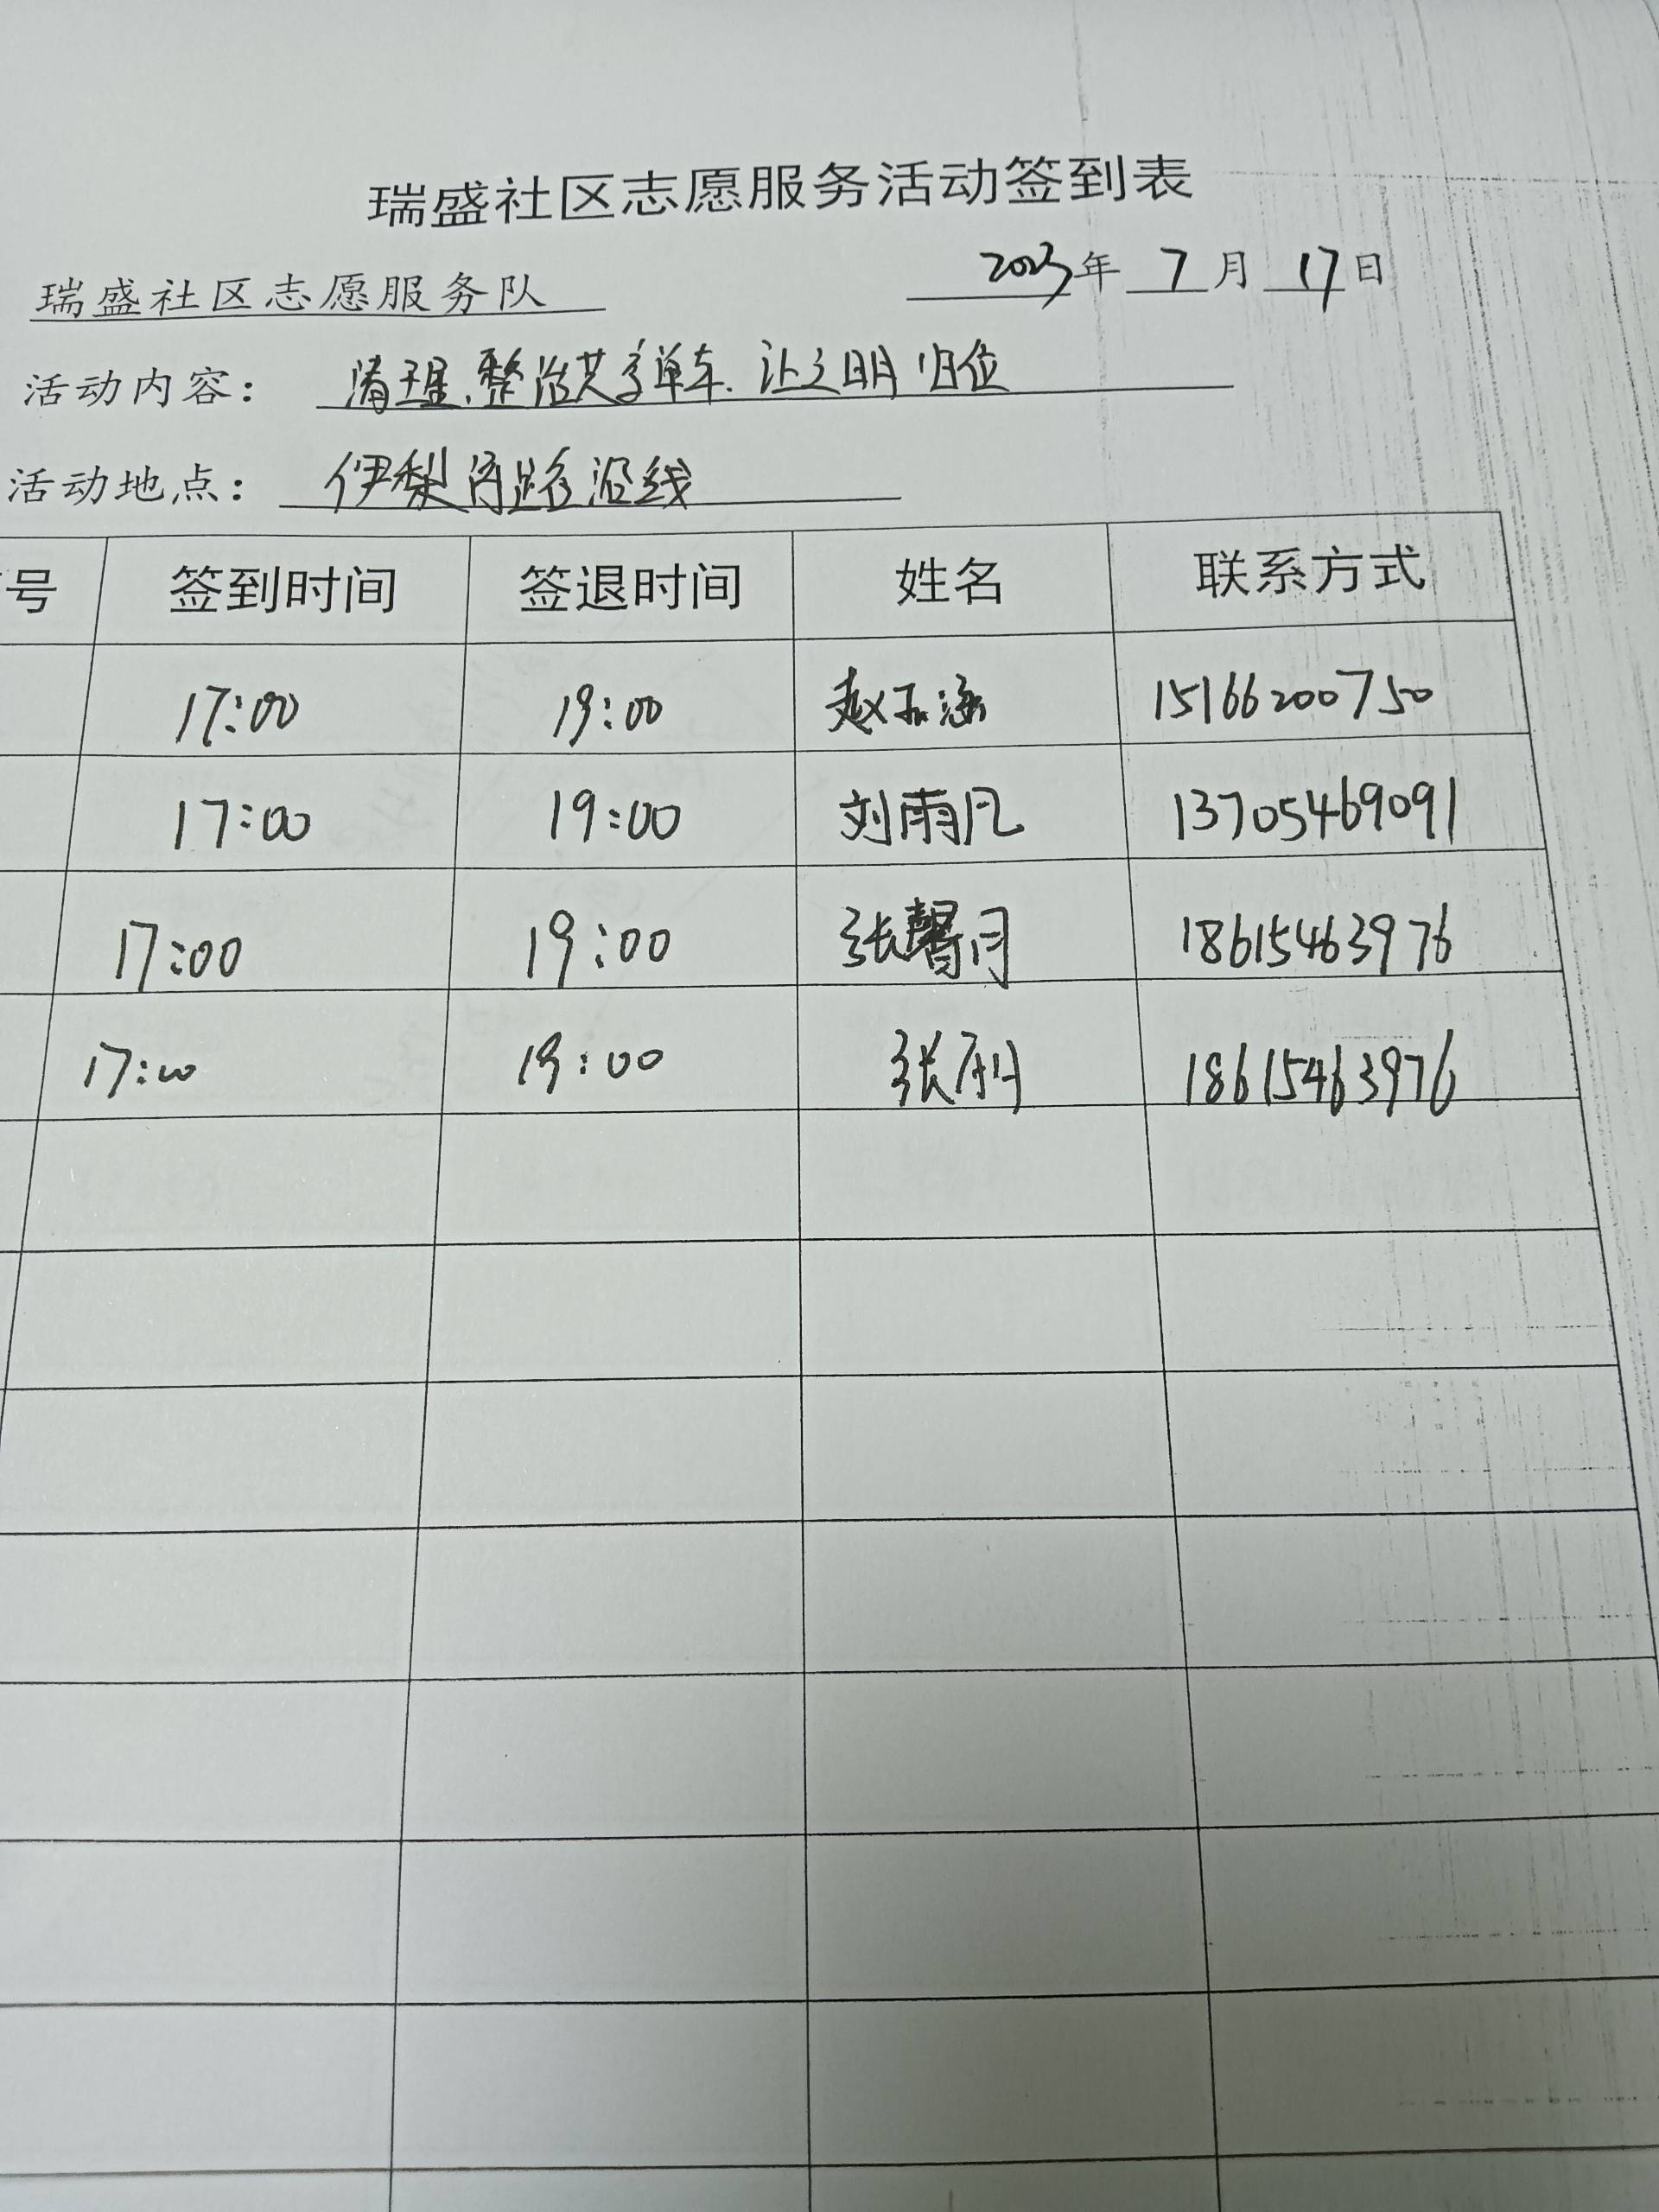 瑞盛社区志愿服务活动签到表
瑞盛社区志愿服务队 2023年 7 月 17 日
活动内容： 清理、整治共享单车.让文明归位
活动地点： 伊犁 路沿线
号 签到时间 签退时间 姓名 联系方式
17:00 19:00 赵玉涵 15166200750
17:00 19:00 刘雨凡 13705469091
17:00 19:00 张馨月 18615463976
17:00 19:00 张 18615463976